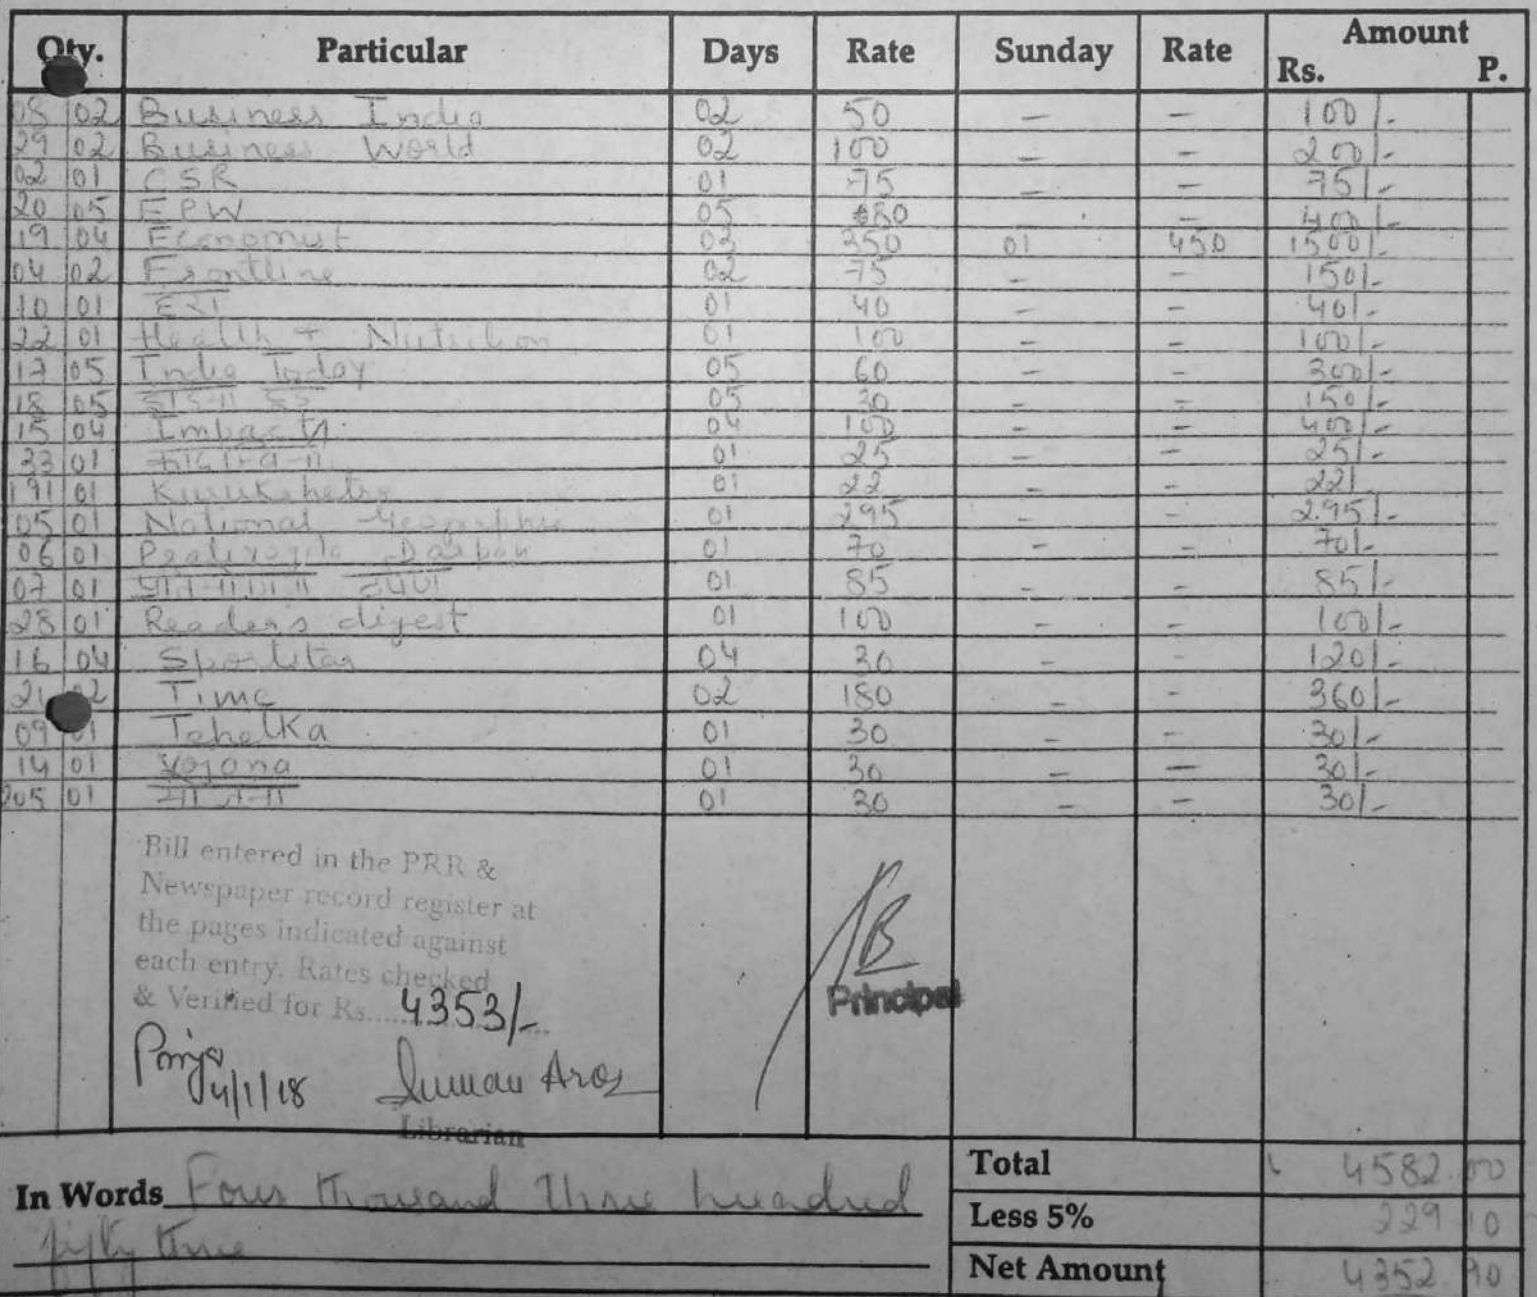 Qty. Particular Days Rate Sunday Rate Amount
Rs. P.
08 02 Business India 02 50 — — 100/-
29 02 Business World 02 100 — — 200/-
02 01 CSR 01 75 — — 75/-
20 05 EPW 05 80 — 400/-
19 04 Economist 03 350 01 450 1500/-
04 02 Frontline 02 75 — — 150/-
10 01 01 40 — — 40/-
22 01 Health + Nutrition 01 100 — — 100/-
17 05 India Today 05 60 — — 300/-
18 05 05 30 — — 150/-
15 04 Impact 04 100 — — 400/-
33 01 01 25 — — 25/-
191 01 Kurukshetra 01 22 — — 22/
05 01 National Geographic 01 295 — — 295/-
06 01 Darpan 01 70 — — 70/-
07 01 दर्पण 01 85 — — 85/-
28 01 Reader's digest 01 100 — — 100/-
16 04 Sportstar 04 30 — — 120/-
21 02 Time 02 180 — — 360/-
09 01 Tehelka 01 30 — — 30/-
14 01 Yojana 01 30 — — 30/-
205 01 01 30 — — 30/-
Bill entered in the PRR &
Newspaper record register at
the pages indicated against
each entry. Rates checked
& Verified for Rs..... 4353/-
Principal
4/1/18 Suman
Librarian
Total 4582.00
In Words Four thousand three hundred
Less 5% 229 10
fifty three
Net Amount 4352 90